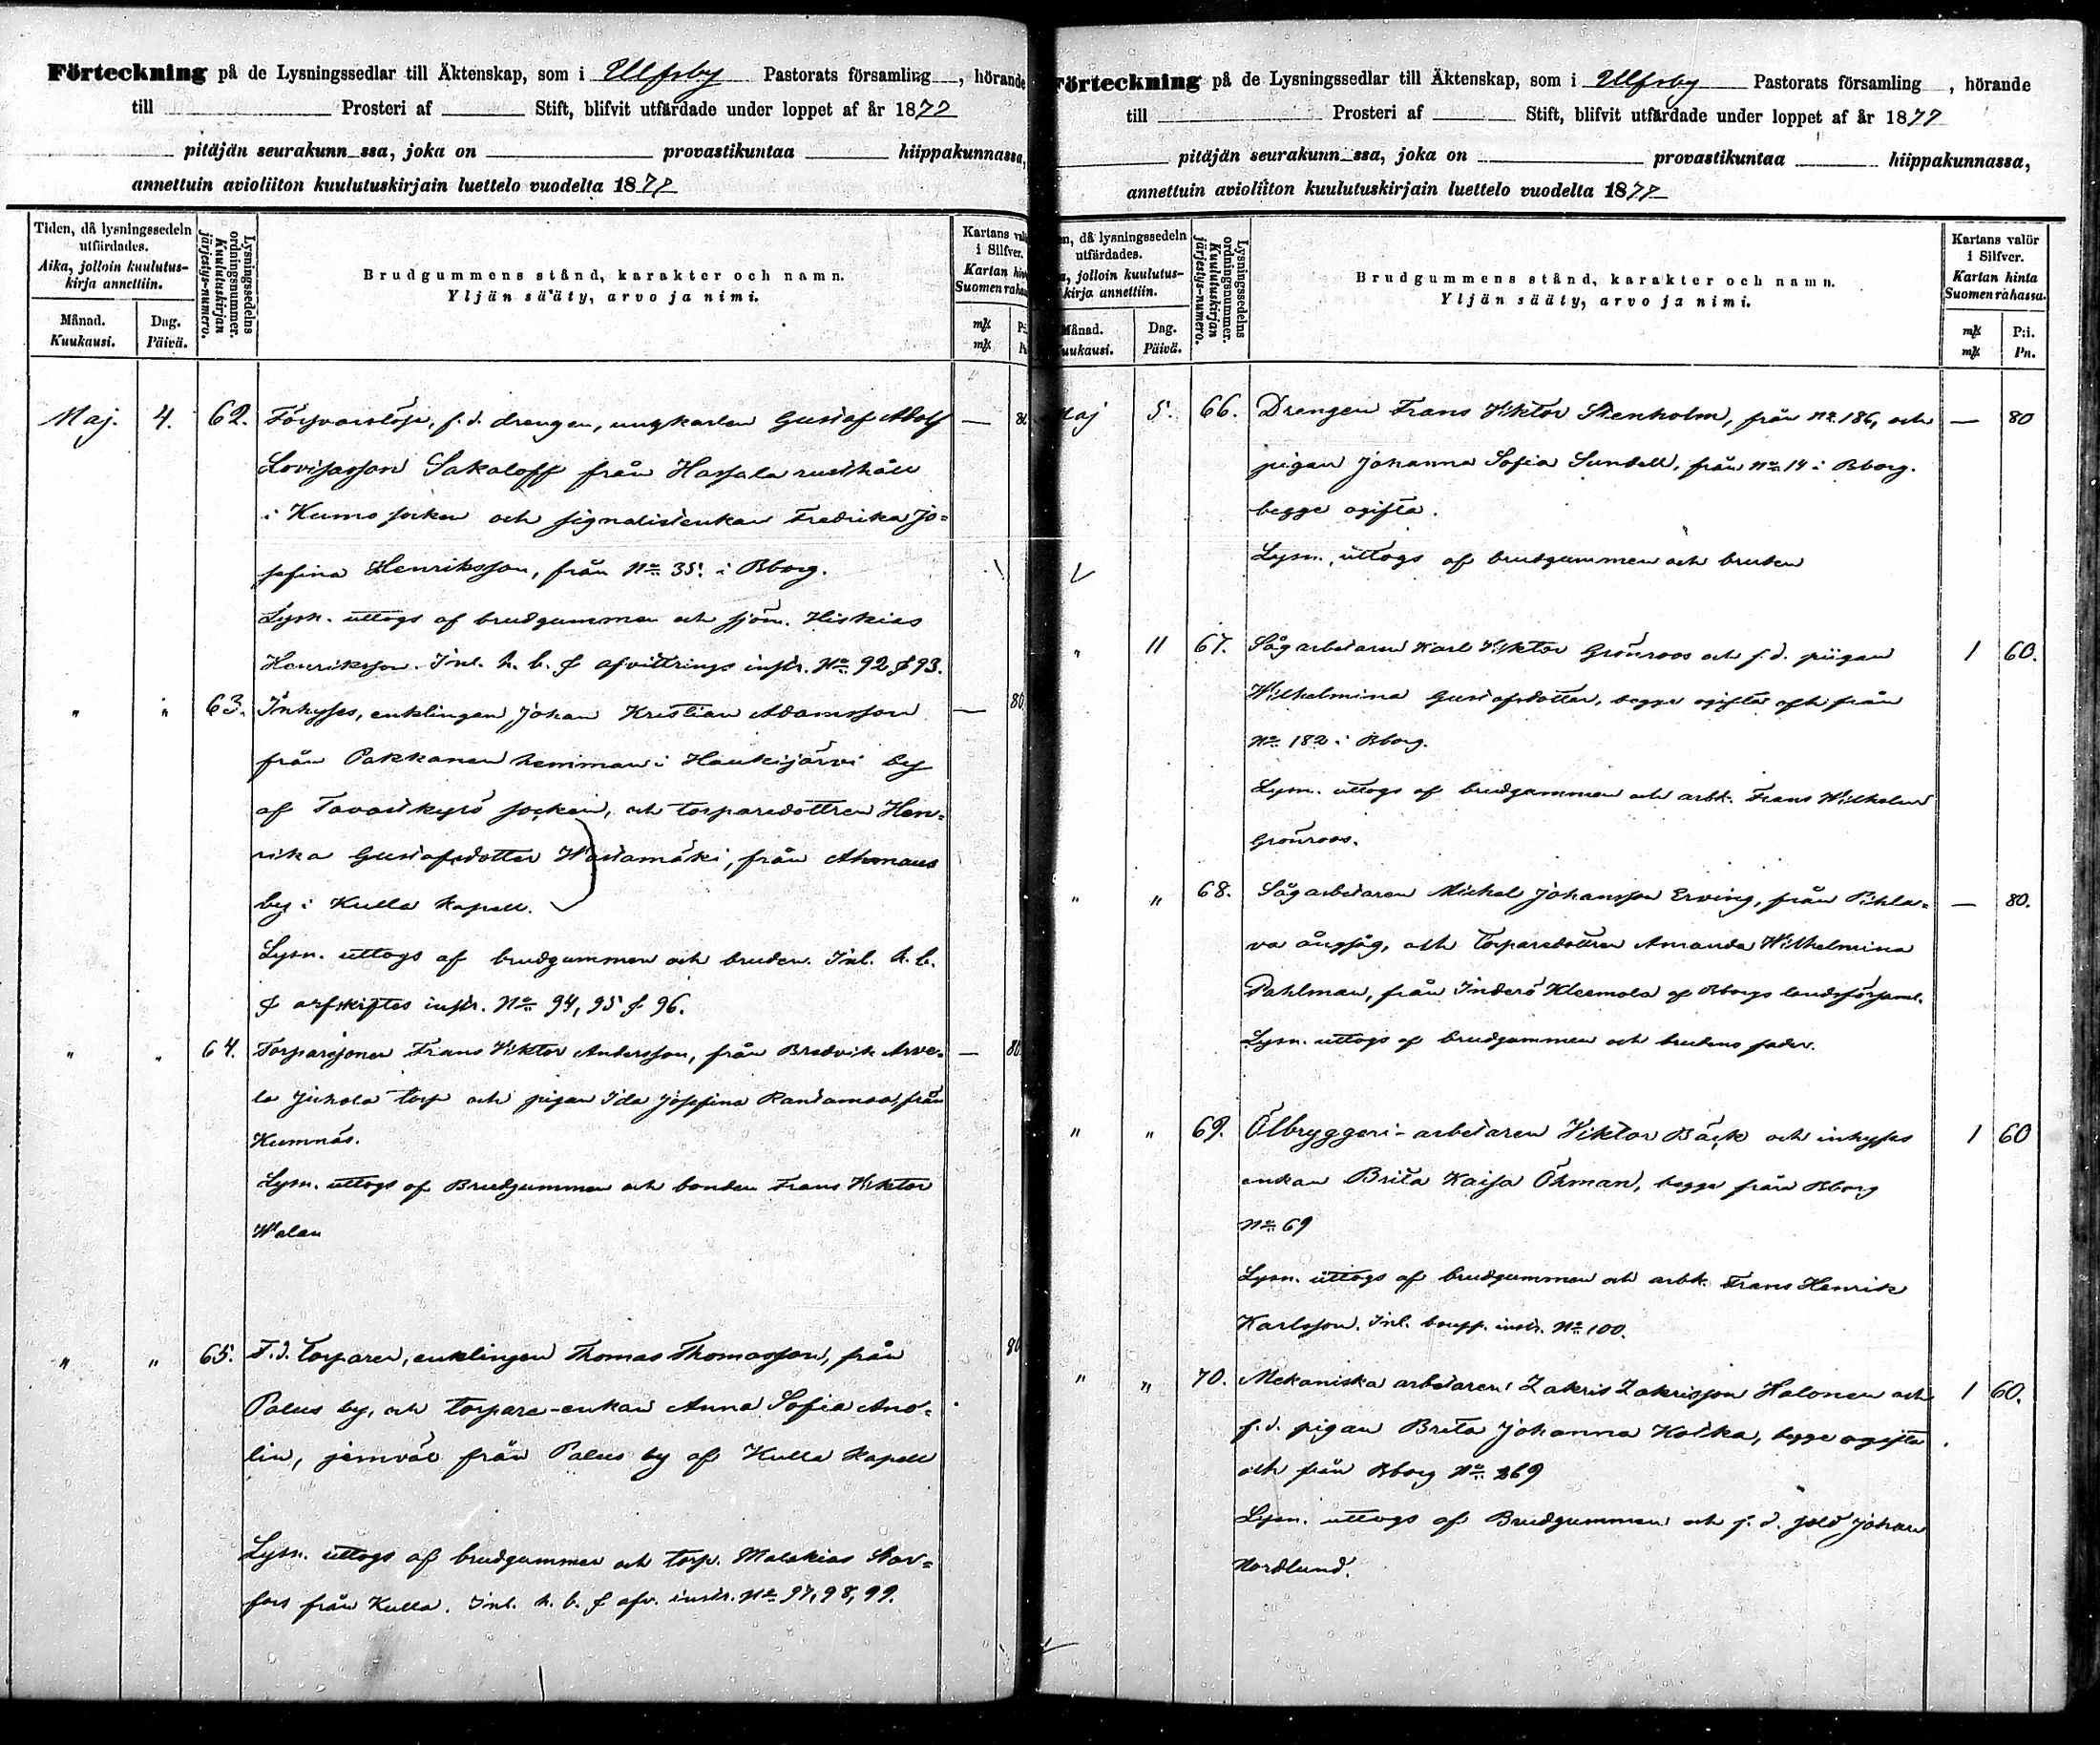 Förteckning på de Lysningssedlar till Äktenskap, som i Ulfsby Pastorats församling, hörande
till Prosteri af Stift, blifvit utfärdade under loppet af år 1877
pitäjän seurakunn ssa, joka on provastikuntaa hiippakunnassa,
annettuin avioliiton kuulutuskirjain luettelo vuodelta 1877
Tiden, då lysningssedeln utfärdades.
Aika, jolloin kuulutuskirja annettiin.
Månad. Kuukausi.
Dag. Päivä.
Lysningssedelns ordningsnummer.
Kuulutuskirjan järjestys-numero.
Brudgummens stånd, karakter och namn.
Yljän sääty, arvo ja nimi.
Kartans valör i Silfver.
Kartan hinta Suomen rahassa.
Maj. 4. 62. Försvarslöse, f.d. drengen, ungkarlen Gustaf Adolf — 80
Lovisasson Sakaloff från Hassala rusthåll
i Kumo socken och signalistenkan Fredrika Jo=
sefina Henriksson, från No 35. i Bborg.
Lysn. uttogs af brudgummen och sjöm. Hiskias
Henriksson. Inl. h. b. & afvittrings instr. No 92 & 93.
" " 63. Inhyses, enklingen Johan Kristian Adamsson — 80
från Pakkanen hemman i Haukijärvi by
af Tavastkyrö socken, och torparedottren Hen=
rika Gustafsdotter Wastamäki, från Ahmaus
by i Kulla Kapell.
Lysn. uttogs af brudgummen och bruden. Inl. h. b.
& arfskiftes instr. No 94, 95 & 96.
" " 64. Torparesonen Frans Viktor Andersson, från Bredvik Arve= — 80
la Juhola torp och pigan Ida Josefina Rantamaa, från
Kumnäs.
Lysn. uttogs af Brudgummen och bonden Frans Viktor
Walen
" " 65. F.d. torparen, enklingen Thomas Thomasson, från 80
Palus by, och torpare-enkan Anna Sofia And=
lin, jemväl från Palus by af Kulla Kapell
Lysn. uttogs af brudgummen och torp. Malakias Stav=
fors från Kulla. Inl. h. b. & afv. instr. No 97, 98, 99.
Förteckning på de Lysningssedlar till Äktenskap, som i Ulfsby Pastorats församling, hörande
till Prosteri af Stift, blifvit utfärdade under loppet af år 1877
pitäjän seurakunn ssa, joka on provastikuntaa hiippakunnassa,
annettuin avioliiton kuulutuskirjain luettelo vuodelta 1877
n, då lysningssedeln utfärdades.
a, jolloin kuulutuskirja annettiin.
Månad. Kuukausi.
Dag. Päivä.
Lysningssedelns ordningsnummer.
Kuulutuskirjan järjestys-numero.
Brudgummens stånd, karakter och namn.
Yljän sääty, arvo ja nimi.
Kartans valör i Silfver.
Kartan hinta Suomen rahassa.
P:i.
Pn.
Maj 5. 66. Drengen Frans Viktor Stenholm, från No 186, och — 80
pigan Johanna Sofia Sundell, från No 14 i Bborg.
begge ogifta.
Lysn. uttogs af brudgummen och bruden
" 11 67. Sågarbetaren Karl Viktor Grönroos och f.d. piigan 1 60.
Wilhelmina Gustafsdotter, begge ogifta och från
No 182 i Bborg.
Lysn. uttogs af brudgummen och arbk. Frans Wilhelm
Grönroos.
" " 68. Sågarbetaren Mickel Johansson Erving, från Pihla= — 80.
va ångsåg, och torparedottren Amanda Wilhelmina
Dahlman, från Inderö Kleemola af Bborgs landsförsaml.
Lysn. uttogs af brudgummen och brudens fader.
" " 69. Ölbryggeri-arbetaren Viktor Bäck och inhyses 1 60
enkan Brita Kaisa Öhman, begge från Bborg
No 69
Lysn. uttogs af brudgummen och arbk. Frans Henrik
Karlsson. Inl. boupp. instr. No 100.
" " 70. Mekaniska arbetaren Zakris Zakrisson Halonen och 1 60.
f.d. pigan Brita Johanna Koska, begge ogifta
och från Bborg No 269
Lysn. uttogs af Brudgummen och f.d. sold Johan
Nordlund.